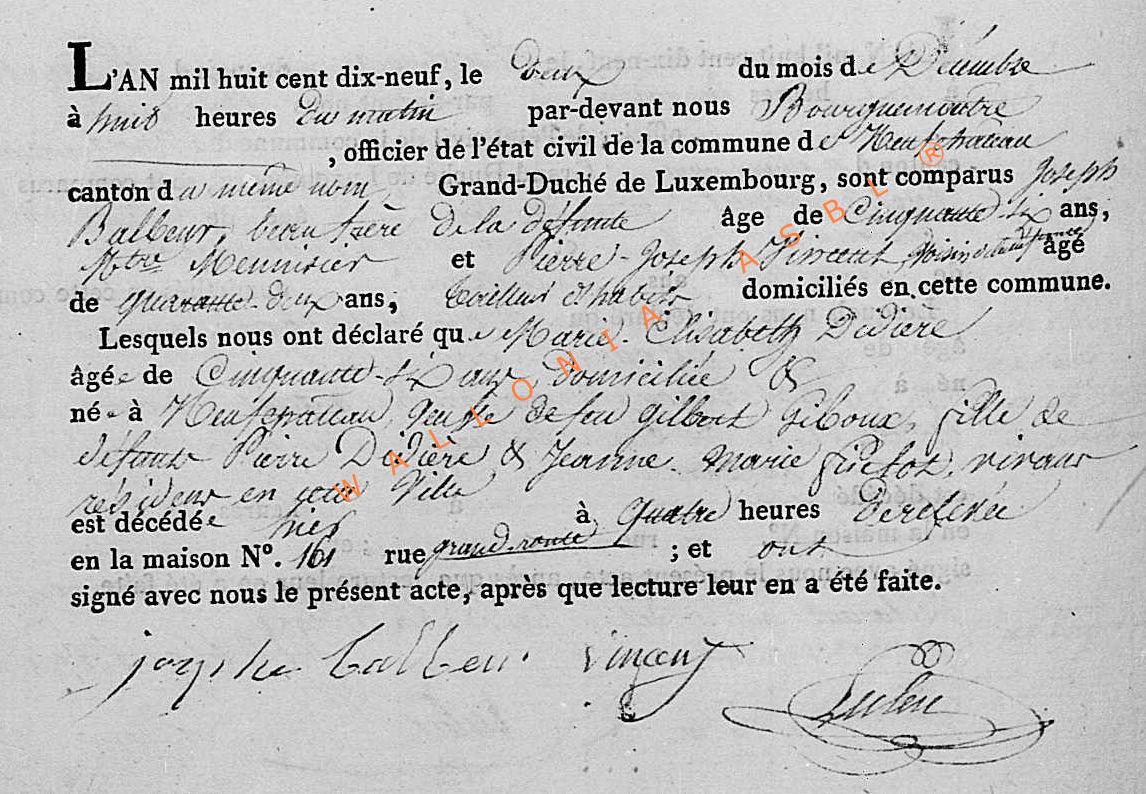 L'AN mil huit cent dix-neuf, le deux du mois de Décembre
à huit heures du matin par-devant nous Bourguemaitre
, officier de l'état civil de la commune de Neufchateau
canton du même nom Grand-Duché de Luxembourg, sont comparus Joseph
Balbeur, beau frère de la défunte âge de Cinquante-six ans,
Mtre Meunisier et Pierre-Joseph Vincent voisin de la défunte âgé
de quarante-deux ans, tailleur d'habits domiciliés en cette commune.
Lesquels nous ont déclaré que Marie-Elisabeth Didière
âgée de Cinquante-six ans, domiciliée &
née à Neufchateau, veuve de feu Gilbert Giboux, fille de
défunts Pierre Didière & Jeanne-Marie, vivans
résidens en cette Ville
est décédée hier à quatre heures de relevée
en la maison N°. 161 rue grand-route ; et ont
signé avec nous le présent acte, après que lecture leur en a été faite.
joseph balbeur vincent
WALLONIA ASBL ®